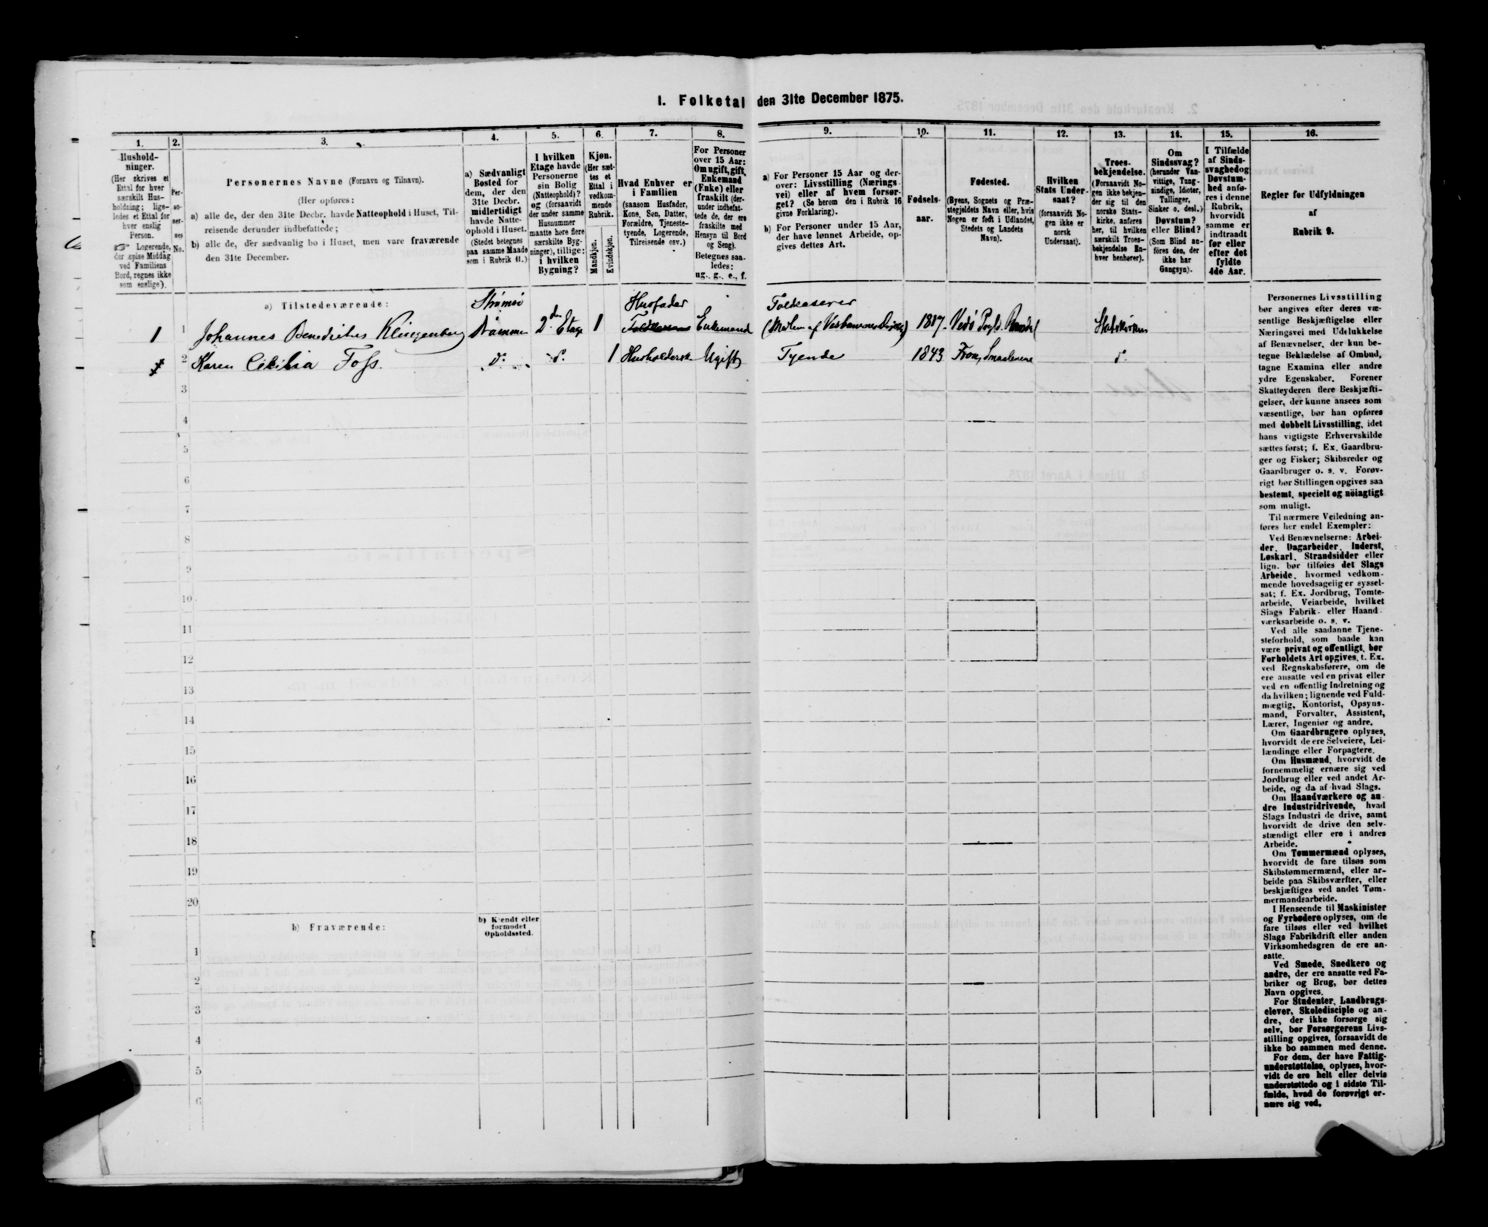 I. Folketal den 31te December 1875.
1. 2. 3. 4. 5. 6. 7. 8. 9. 10. 11. 12. 13. 14. 15. 16.
Hushold-
ninger.
(Her skrives et
Ettal for hver
særskilt Hus-
holdning; lige-
ledes et Ettal for
hver enslig
Person.
☞ Logerende,
der spise Middag
ved Familiens
Bord, regnes ikke
som enslige).
Per-
so-
ner-
nes
No.
Personernes Navne (Fornavn og Tilnavn).
(Her opføres:
a) alle de, der den 31te Decbr. havde Natteophold i Huset, Til-
reisende derunder indbefattede;
b) alle de, der sædvanlig bo i Huset, men vare fraværende
den 31te December.
a) Sædvanligt
Bosted for
dem, der den
31te Decbr.
midlertidigt
havde Natte-
ophold i Huset.
(Stedet betegnes
paa samme Maade
som i Rubrik 11.)
I hvilken
Etage havde
Personerne
sin Bolig
(Natteophold)?
og (forsaavidt
der under samme
Husnummer
maatte høre flere
særskilte Byg-
ninger), tillige:
i hvilken
Bygning?
Kjøn.
(Her sæt-
tes et
Ettal i
vedkom-
mende
Rubrik.
Mandkjøn.
Kvindekjøn.
Hvad Enhver er
i Familien
(saasom Husfader,
Kone, Søn, Datter,
Forældre, Tjeneste-
tyende, Logerende,
Tilreisende osv.)
For Personer
over 15 Aar:
Om ugift, gift,
Enkemand
(Enke) eller
fraskilt (der-
under indbefat-
tede de, der ere
fraskilte med
Hensyn til Bord
og Seng).
Betegnes saa-
ledes:
ug., g., e., f.
a) For Personer 15 Aar og der-
over: Livsstilling (Nærings-
vei) eller af hvem forsør-
get? (Se herom den i Rubrik 16
givne Forklaring).
b) For Personer under 15 Aar,
der have lønnet Arbeide, op-
gives dettes Art.
Fødsels-
aar.
Fødested.
(Byens, Sognets og Præ-
stegjeldets Navn eller, hvis
Nogen er født i Udlandet,
Stedets og Landets
Navn).
Hvilken
Stats Under-
saat?
(forsaavidt No-
gen ikke er
norsk
Undersaat).
Troes-
bekjendelse.
(Forsaavidt No-
gen ikke bekjen-
der sig til den
norske Stats-
kirke, anføres
her, til hvilken
særskilt Troes-
bekjendelse En-
hver henhører).
Om
Sindssvag?
(herunder Van-
vittige, Tung-
sindige, Idioter,
Tullinger,
Sinker o. desl.)
Døvstum?
eller Blind?
(Som Blind an-
føres den, der
ikke har
Gangsyn).
I Tilfælde
af Sinds-
svaghed og
Døvstum-
hed anfø-
res i denne
Rubrik,
hvorvidt
samme er
indtraadt
før eller
efter det
fyldte
4de Aar.
Regler for Udfyldningen
af
Rubrik 9.
a) Tilstedeværende:
1 1 Johannes Benedictus Klingenberg Strømsø Drammen 2den Etage 1 Husfader Enkemand Toldkasserer 1817.
2 Karen Cecilia Foss. do. do. 1 Husholderske Ugift Tyende 1843 Smaalenene do.
3
4
5
6
7
8
9
10
11
12
13
14
15
16
17
18
19
20
b) Fraværende:
b) Kjendt eller
formodet
Opholdssted.
1
2
3
4
5
6
Personernes Livsstilling
bør angives efter deres væ-
sentlige Beskjæftigelse eller
Næringsvei med Udelukkelse
af Benævnelser, der kun be-
tegne Beklædelse af Ombud,
tagne Examina eller andre
ydre Egenskaber. Forener
Skatteyderen flere Beskjæfti-
gelser, der kunne ansees som
væsentlige, bør han opføres
med dobbelt Livsstilling, idet
hans vigtigste Erhvervskilde
sættes først; f. Ex. Gaardbru-
ger og Fisker; Skibsreder og
Gaardbruger o. s. v. Forøv-
rigt bør Stillingen opgives saa
bestemt, specielt og nøiagtigt
som muligt.
Til nærmere Veiledning an-
føres her endel Exempler:
Ved Benævnelserne: Arbei-
der, Dagarbeider, Inderst,
Løskarl, Strandsidder eller
lign. bør tilføies det Slags
Arbeide, hvormed vedkom-
mende hovedsagelig er syssel-
sat; f. Ex. Jordbrug, Tomte-
arbeide, Veiarbeide, hvilket
Slags Fabrik- eller Haand-
værksarbeide o. s. v.
Ved alle saadanne Tjene-
steforhold, som baade kan
være privat og offentligt, bør
Forholdets Art opgives, f. Ex.
ved Regnskabsførere, om de
ere ansatte ved en privat eller
ved en offentlig Indretning og
da hvilken; lignende ved Fuld-
mægtig, Kontorist, Opsyns-
mand, Forvalter, Assistent,
Lærer, Ingeniør og andre.
Om Gaardbrugere oplyses,
hvorvidt de ere Selveiere, Lei-
lændinge eller Forpagtere.
Om Husmænd, hvorvidt de
fornemmelig ernære sig ved
Jordbrug eller ved andet Ar-
beide, og da af hvad Slags.
Om Haandværkere og an-
dre Industridrivende, hvad
Slags Industri de drive, samt
hvorvidt de drive den selv-
stændigt eller ere i andres
Arbeide.
Om Tømmermænd oplyses,
hvorvidt de fare tilsøs som
Skibstømmermænd, eller ar-
beide paa Skibsværfter, eller
beskjæftiges ved andet Tøm-
mermandsarbeide.
I Henseende til Maskinister
og Fyrbødere oplyses, om de
fare tilsøs eller ved hvilket
Slags Fabrikdrift eller anden
Virksomhedsgren de ere an-
satte.
Ved Smede, Snedkere og
andre, der ere ansatte ved Fa-
briker og Brug, bør dettes
Navn opgives.
For Studenter, Landbrugs-
elever, Skoledisciple og an-
dre, der ikke forsørge sig
selv, bør Forsørgerens Livs-
stilling opgives, forsaavidt de
ikke bo sammen med denne.
For dem, der have Fattig-
understøttelse, oplyses, hvor-
vidt de ere helt eller delvis
understøttede og i sidste Til-
fælde, hvad de forøvrigt er-
nære sig ved.